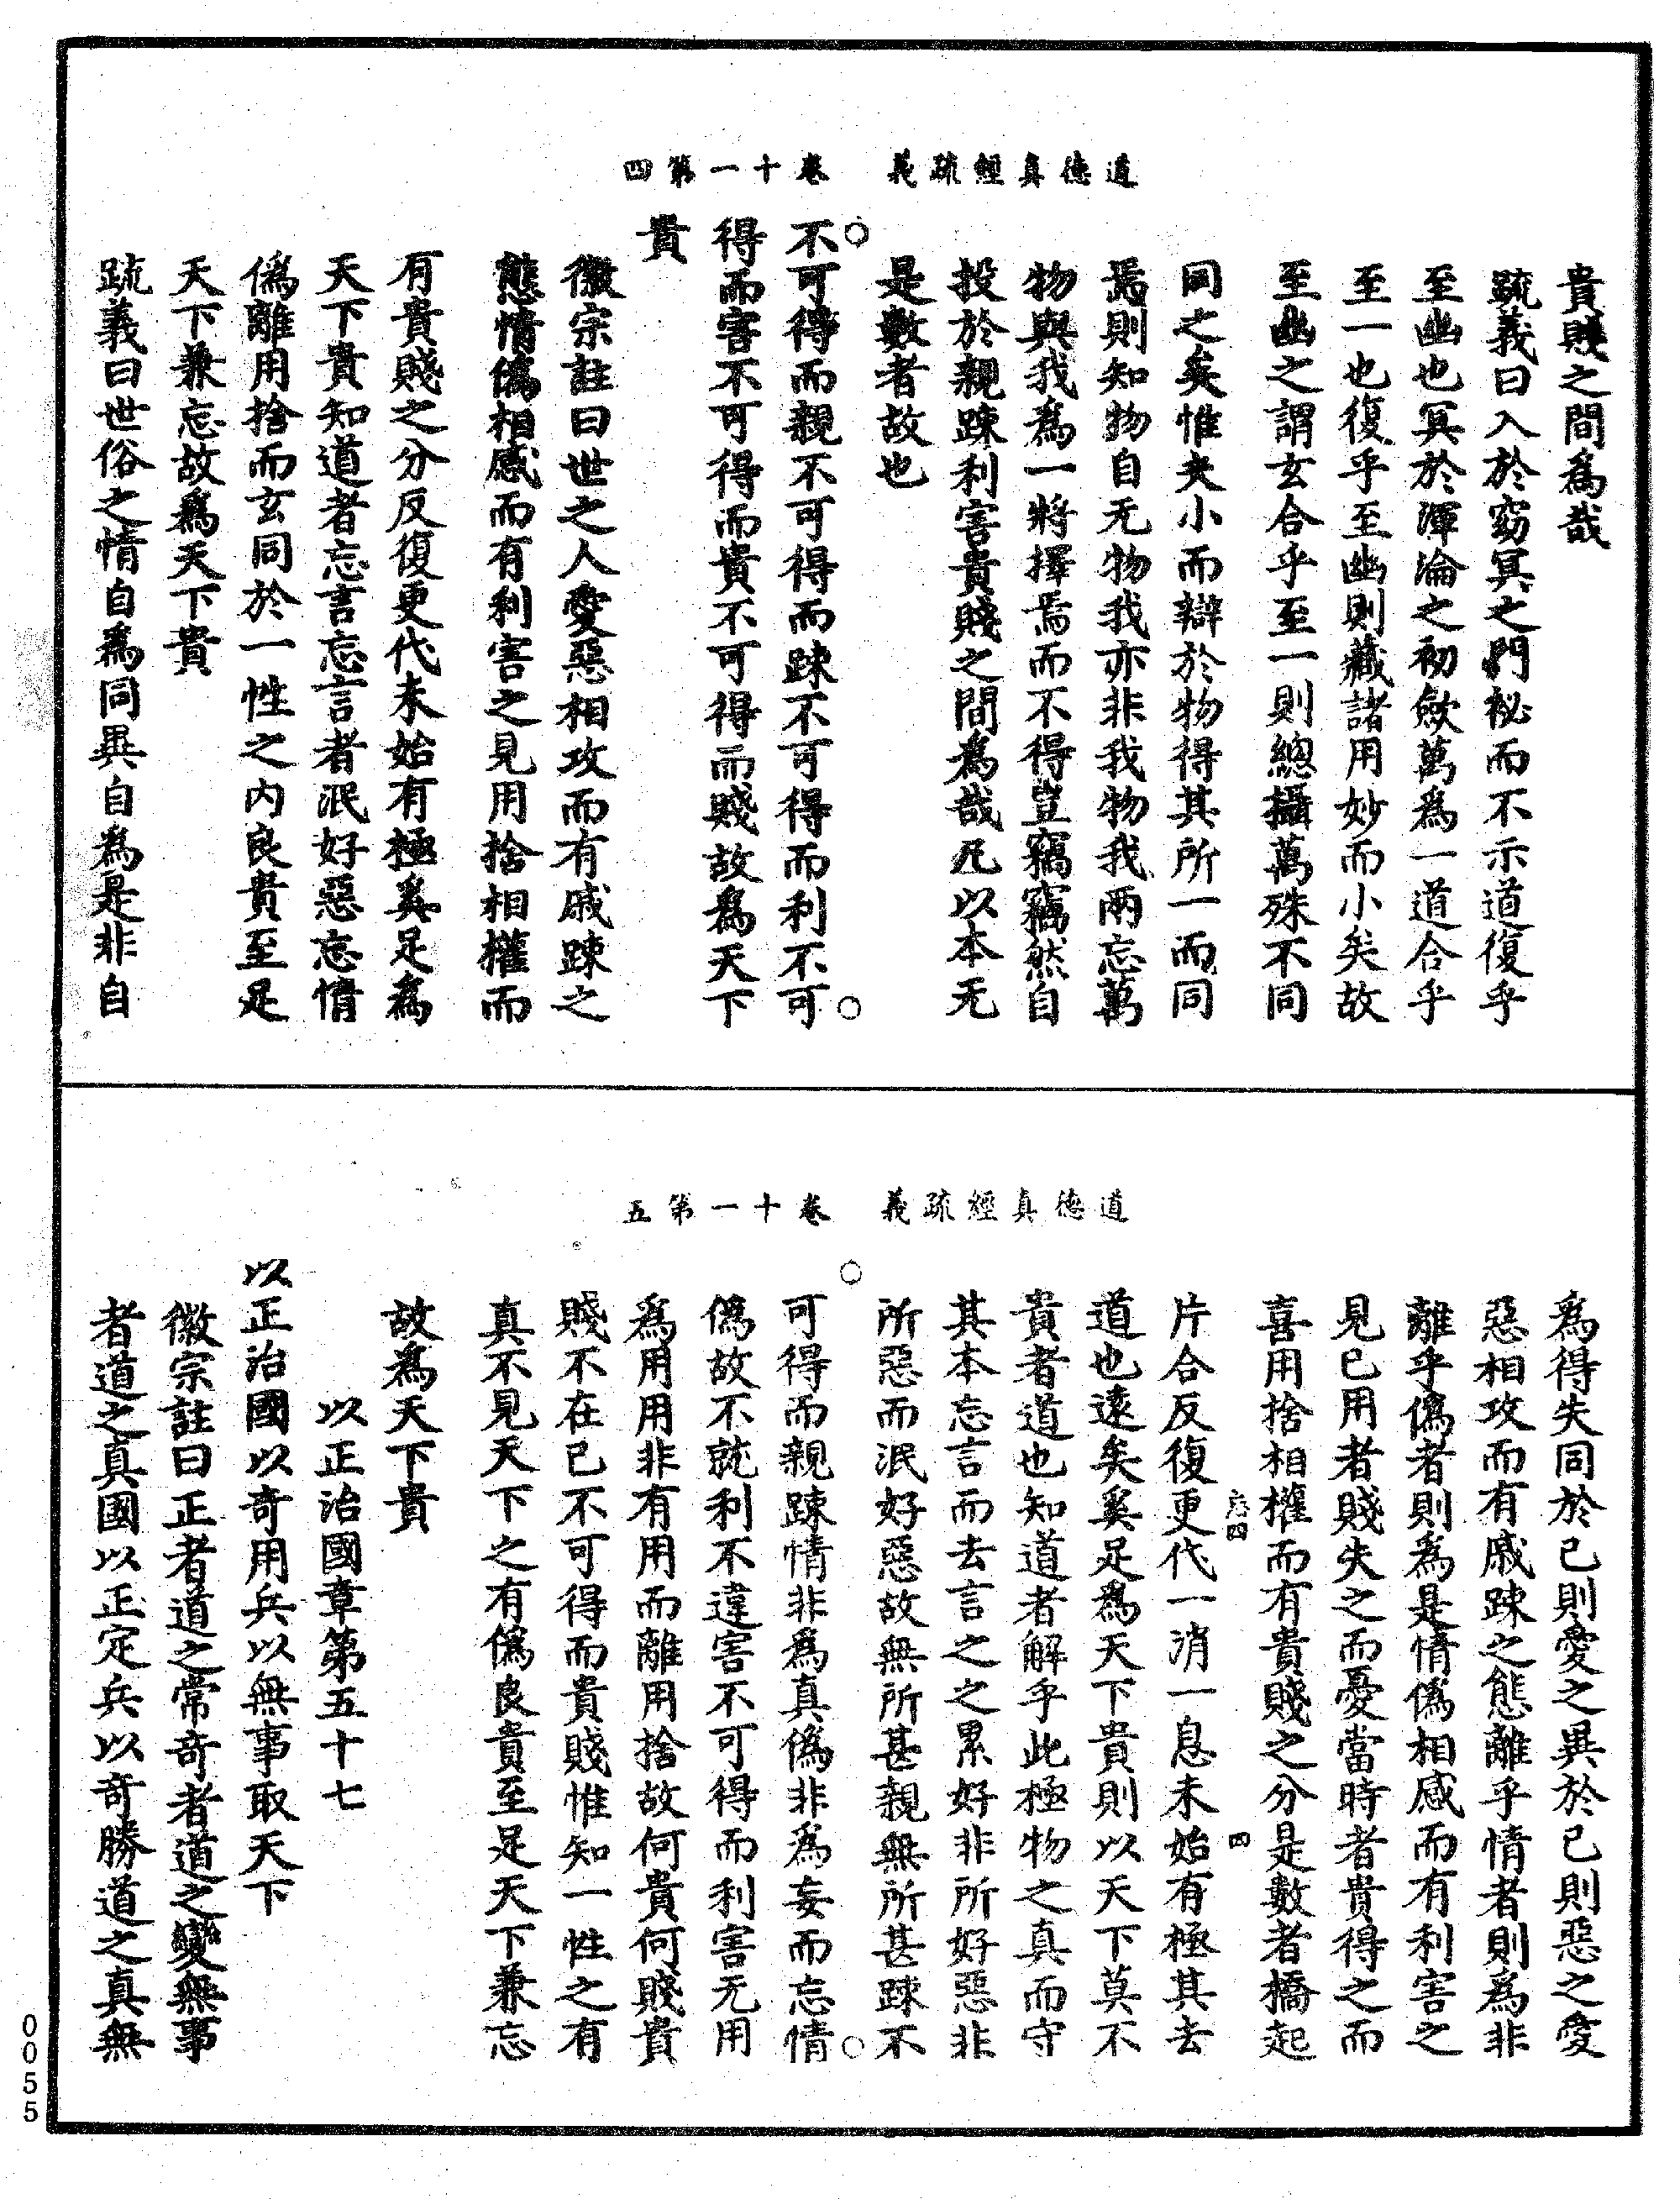 道德真經疏義　卷十一第四
貴賤之間為哉
䟽義曰入於窈冥之門祕而不示道復乎
至幽也冥於渾淪之初歛萬為一道合乎
至一也復乎至幽則藏諸用妙而小矣故
至幽之謂玄合乎至一則總攝萬殊不同
同之矣惟夫小而辯於物得其所一而同
焉則知物自无物我亦非我物我兩忘萬
物與我為一將擇焉而不得豈竊竊然自
投於親踈利害貴賤之間為哉凡以本无
是數者故也
不可得而親不可得而踈不可得而利不可
得而害不可得而貴不可得而賤故為天下
貴
徽宗註曰世之人愛惡相攻而有戚踈之
態情偽相感而有利害之見用捨相權而
有貴賤之分反復更代未始有極奚足為
天下貴知道者忘言忘言者泯好惡忘情
偽離用捨而玄同於一性之內良貴至是
天下兼忘故為天下貴
䟽義曰世俗之情自為同異自為是非自
道德真經疏義　卷十一第五
為得失同於己則愛之異於己則惡之愛
惡相攻而有戚踈之態離乎情者則為非
離乎偽者則為是情偽相感而有利害之
見已用者賤失之而憂當時者貴得之而
喜用捨相權而有貴賤之分是數者橋起
片合反復更代一消一息未始有極其去
道也遠矣奚足為天下貴則以天下莫不
貴者道也知道者解乎此極物之真而守
其本忘言而去言之之累好非所好惡非
所惡而泯好惡故無所甚親無所甚踈不
可得而親踈情非為真偽非為妄而忘情
偽故不就利不違害不可得而利害无用
為用用非有用而離用捨故何貴何賤貴
賤不在己不可得而貴賤惟知一性之有
真不見天下之有偽良貴至是天下兼忘
故為天下貴
以正治國章第五十七
以正治國以奇用兵以無事取天下
徽宗註曰正者道之常奇者道之變無事
者道之真國以正定兵以奇勝道之真無
0055